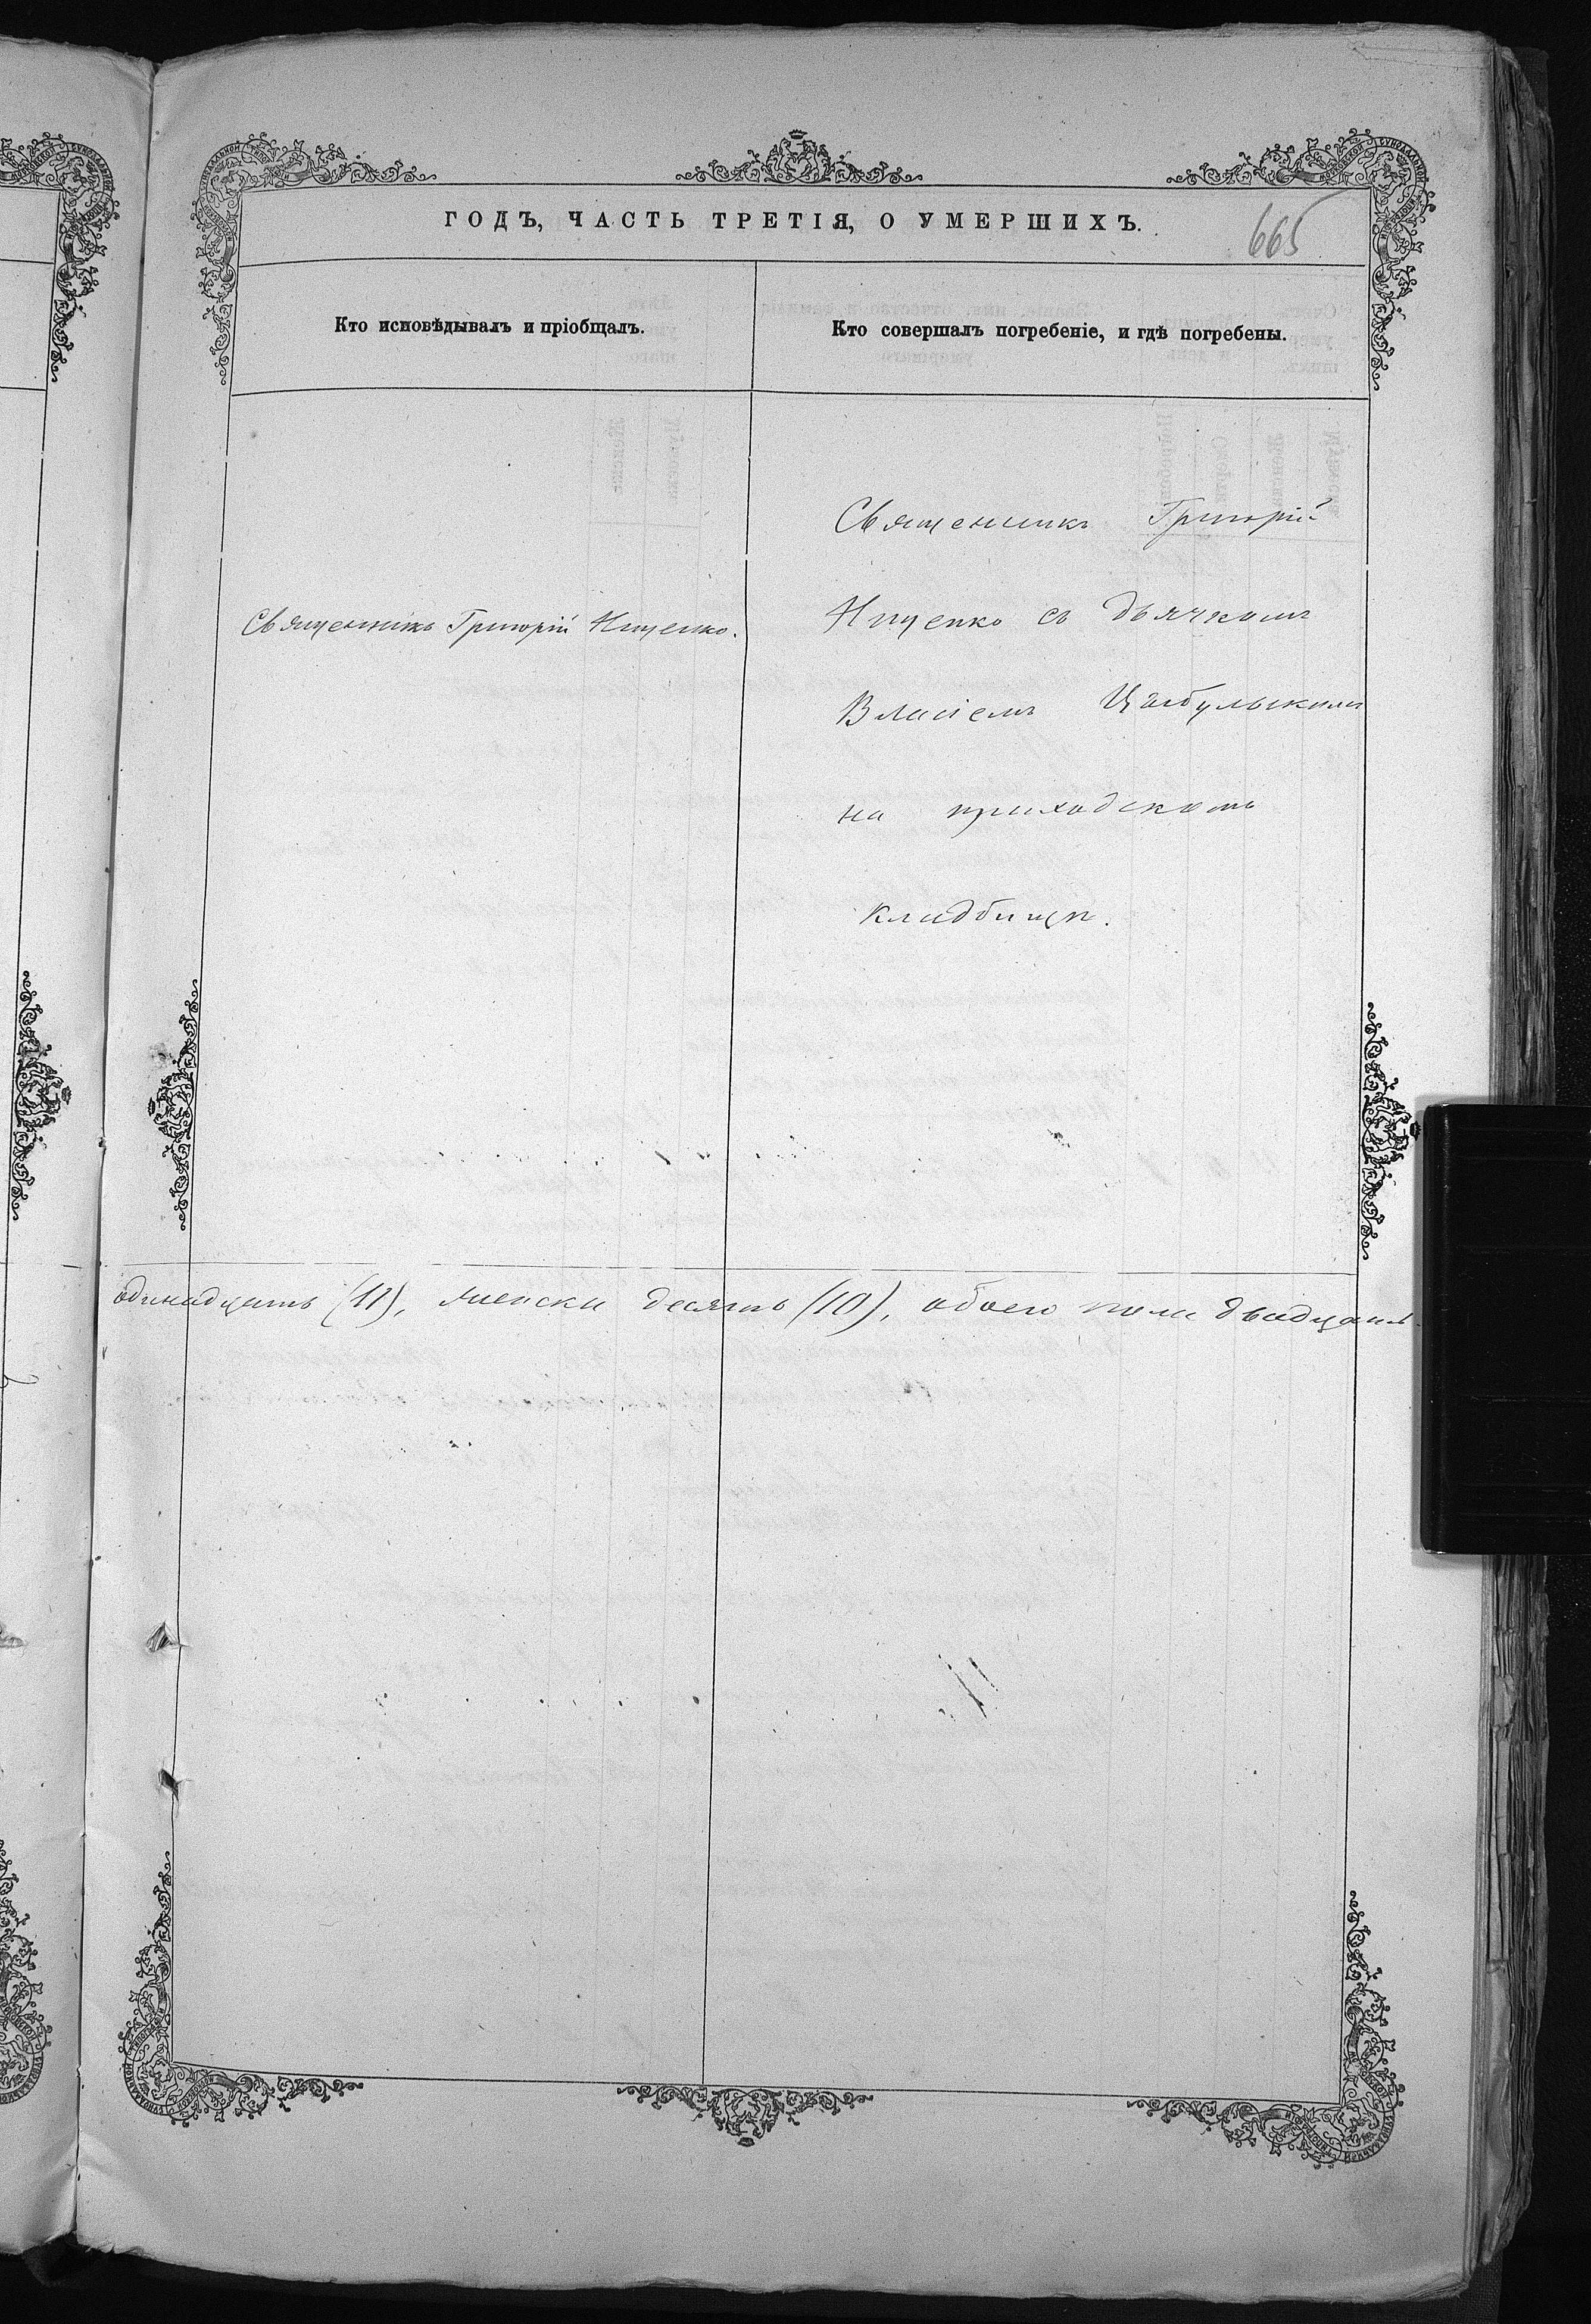 ГОДЪ, ЧАСТЬ ТРЕТІЯ, О УМЕРШИХЪ.
665
Кто исповѣдывалъ и пріобщалъ.
Кто совершалъ погребеніе, и гдѣ погребены.
Священникъ Григорій Ищенко.
Священникъ Григорій
Ищенко съ дьячкомъ
Власіемъ Цыбульскимъ
на приходскомъ
кладбищѣ.
одинадцать (11), женска десять (10), обоего пола двадцать